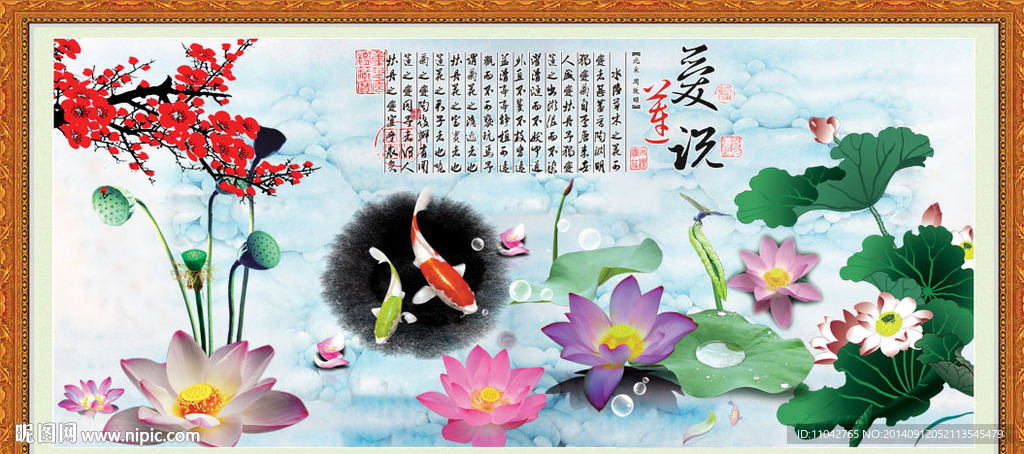 愛莲说
【北宋 周敦颐】
水陸草木之花可
愛者甚蕃晋陶渊明
獨愛菊自李唐来世
人盛愛牡丹予獨愛
莲之出淤泥而不染
濯清涟而不妖中通
外直不蔓不枝香遠
益清亭亭静植可遠
觀而不可亵玩焉予
謂菊花之隐逸者也
牡丹花之富贵者也
莲花之君子者也噫
菊之愛陶後鲜有聞
莲之愛同予者何人
牡丹之愛宜乎衆矣
昵图网 www.nipic.com
ID:11042765 NO:20140912052113545479